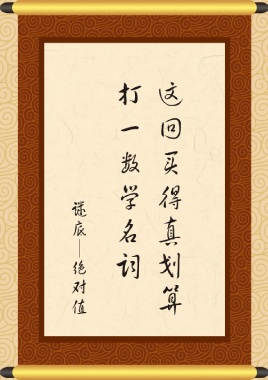 这回买得真划算
打一数学名词
谜底——绝对值